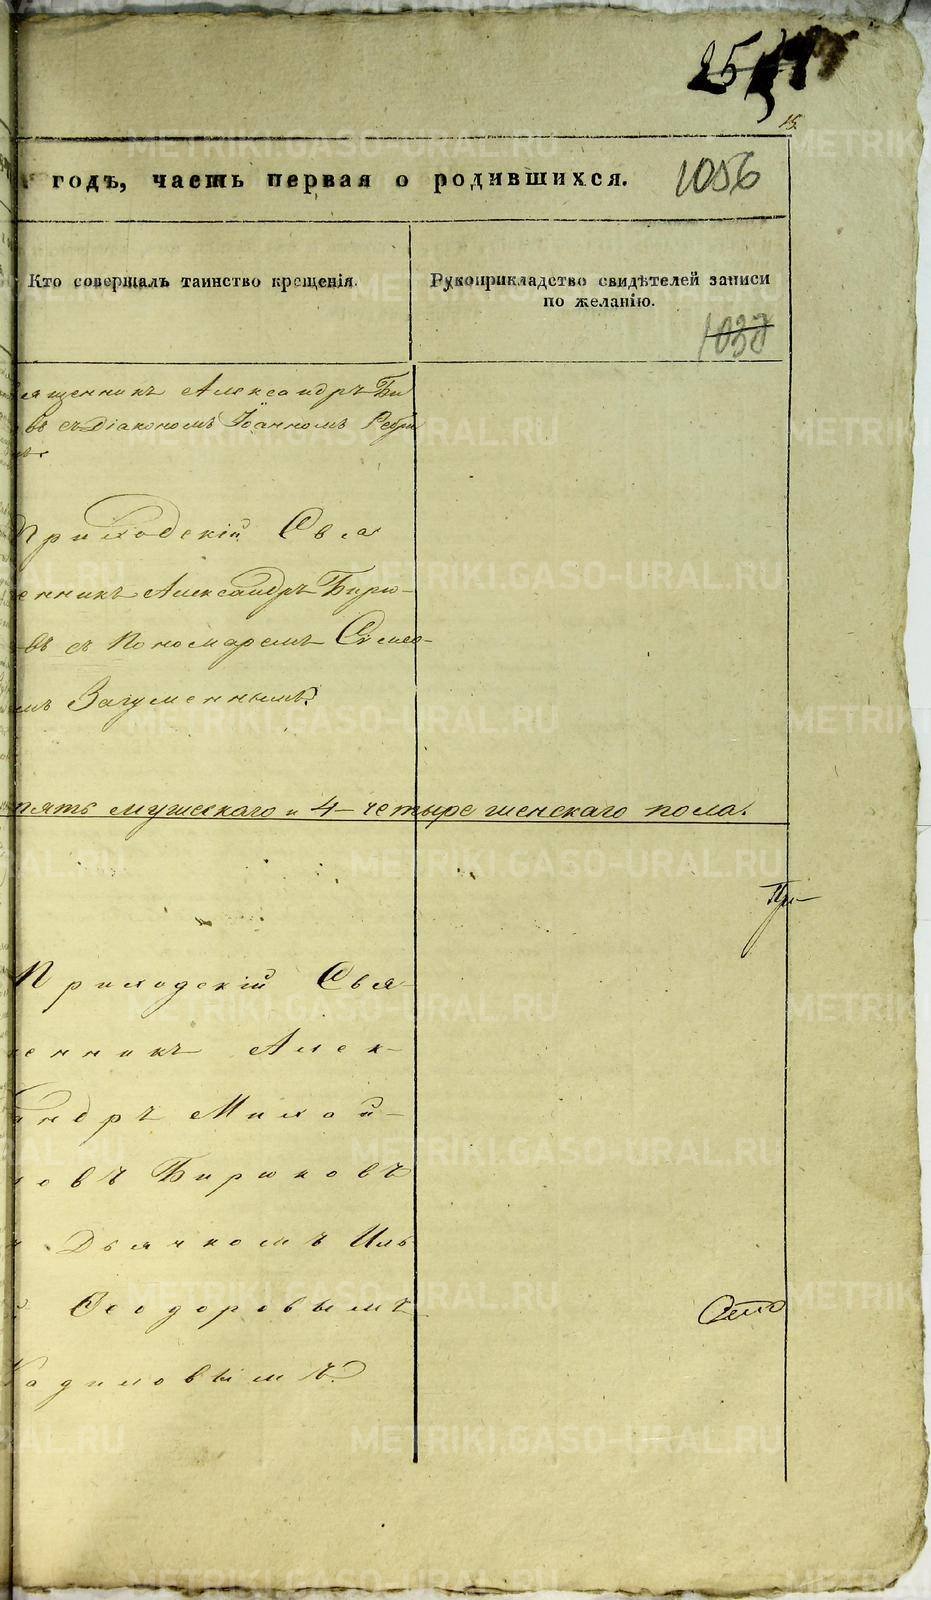 25
15
годъ, часть первая о родившихся.
1056
Кто совершалъ таинство крещенія.
Рукоприкладство свидѣтелей записи
по желанію.
1037
ященникъ Александръ Би
въ съ Діакономъ Іоанномъ
Приходскій Свя
енникъ Александръ Бирю-
въ съ Пономаремъ Симео-
мъ Загуменнымъ.
пять мужескаго и 4-четыре женскаго пола.
При-
Приходскій Свя-
енникъ Алек-
андръ Михай-
овъ Бирюковъ
Дьячкомъ Иль
Ѳеодоровымъ
Кадиловымъ.
METRIKI.GASO-URAL.RU